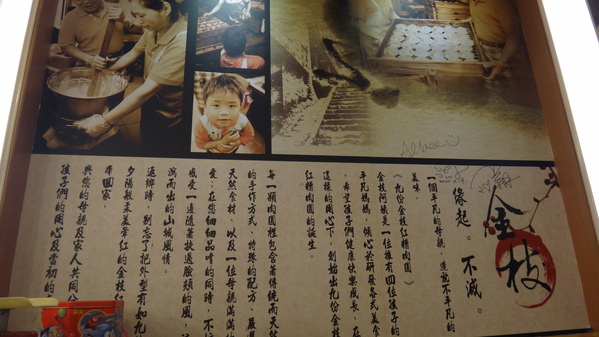 金枝
緣起。不滅。
一個平凡的母親，造就不平凡的
美味。
《九份金枝紅糟肉圓》
金枝阿姨是一位擁有四位孩子的
平凡媽媽，傾心於研發各式美食
，希望孩子們健康快樂成長，在
這樣的用心下，創始出九份金枝
紅糟肉圓的誕生。
每一顆肉圓裡包含著傳統而天然
的手作方式，特殊的配方，嚴選
天然食材，以及一位母親滿滿的
愛；在您細細品嚐的同時，不妨
感受一邊隨著拂過臉頰的風，
流而出的小城風情。
返鄉時，別忘了把外型有如九
夕陽般未差暈紅的金枝紅
帶回家，
與您的母親及家人共同
孩子們的用心及當初的
Allbee